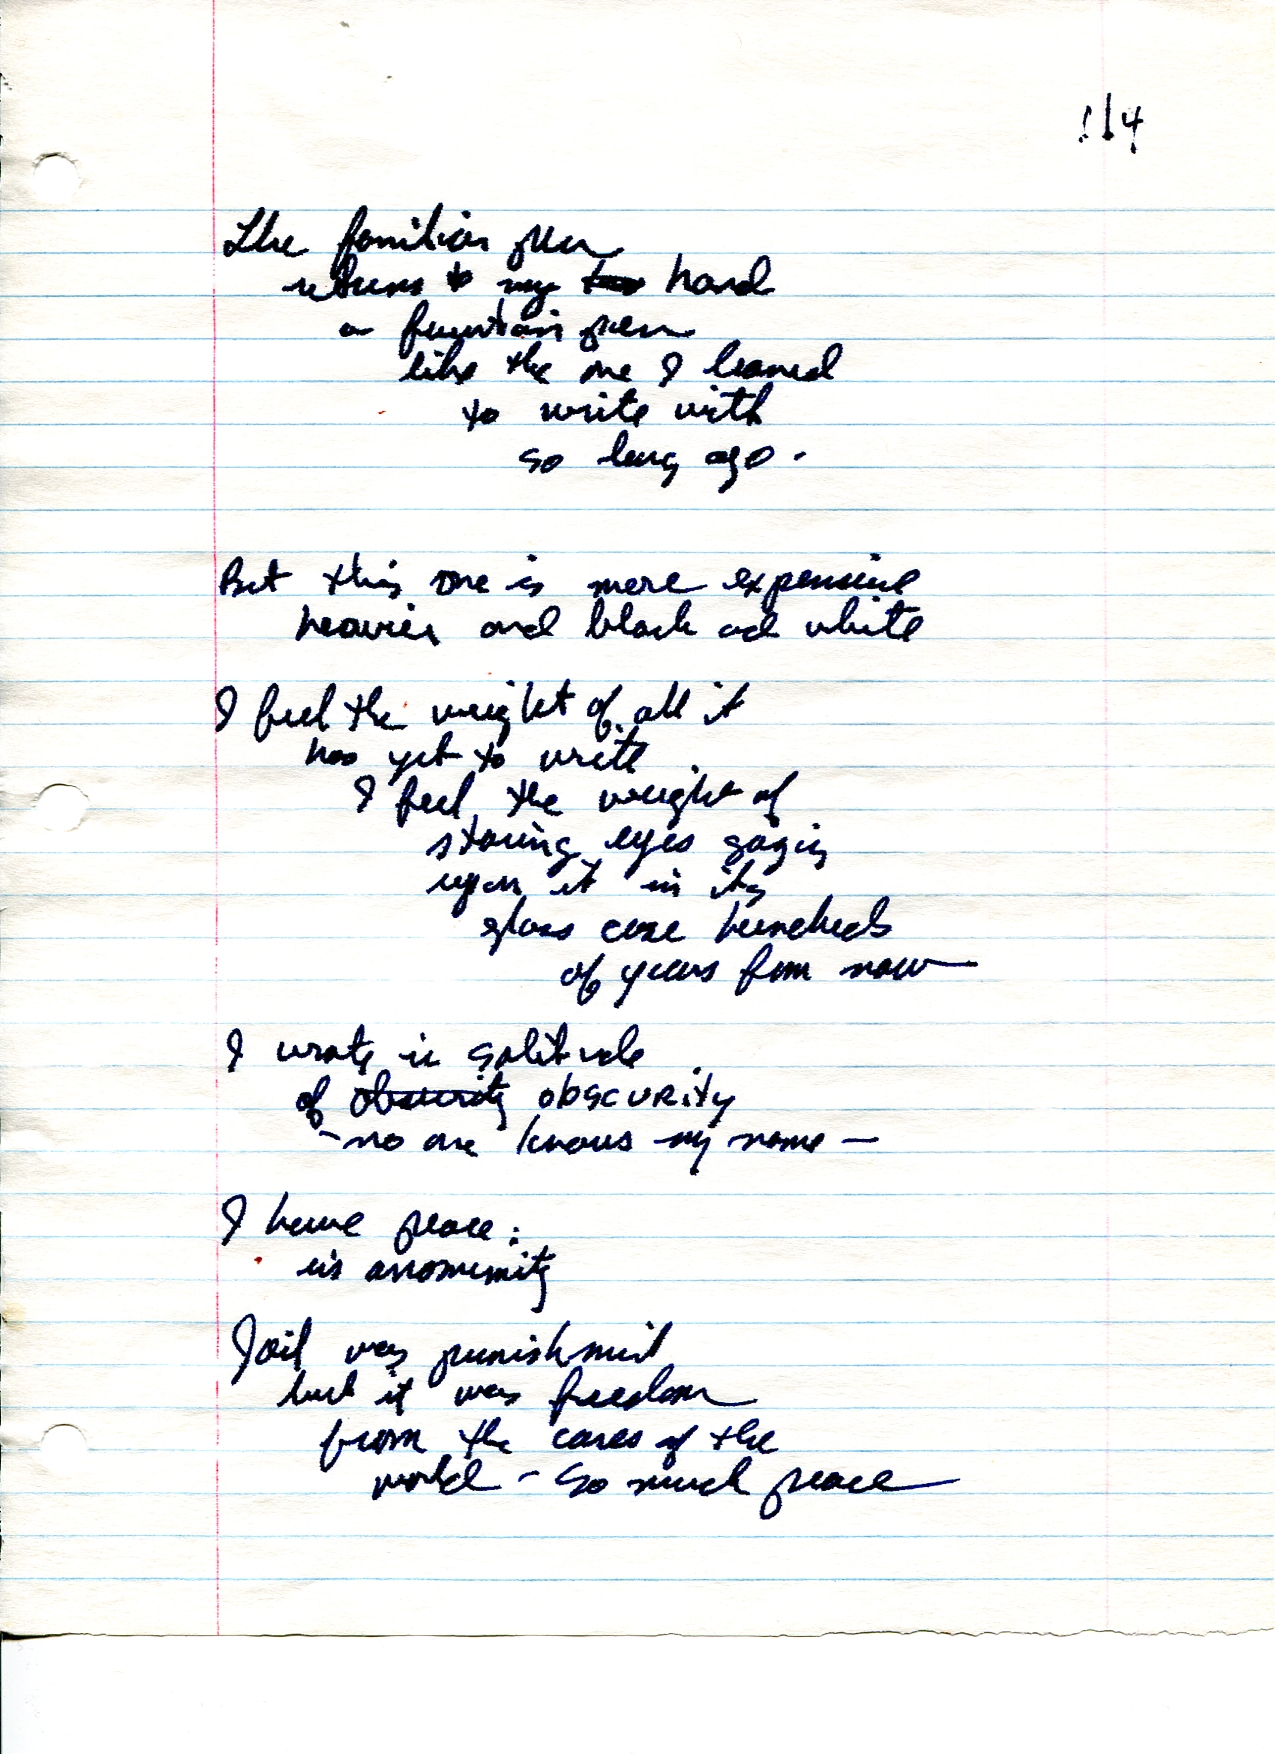 114
The familiar pen
returns to my hand
a fountain pen
like the one I learned
to write with
so long ago.
But this one is more expensive
heavier and black ad white
I feel the weight of all it
has yet to write.
I feel the weight of
staring eyes gazing
upon it in its
glass case hundreds
of years from now—
I wrote in solitude
of obscurity obscurity
- no one knows my name —
I have peace:
in anomimity
Jail was punishment
but it was freedom
from the cares of the
world - So much peace—